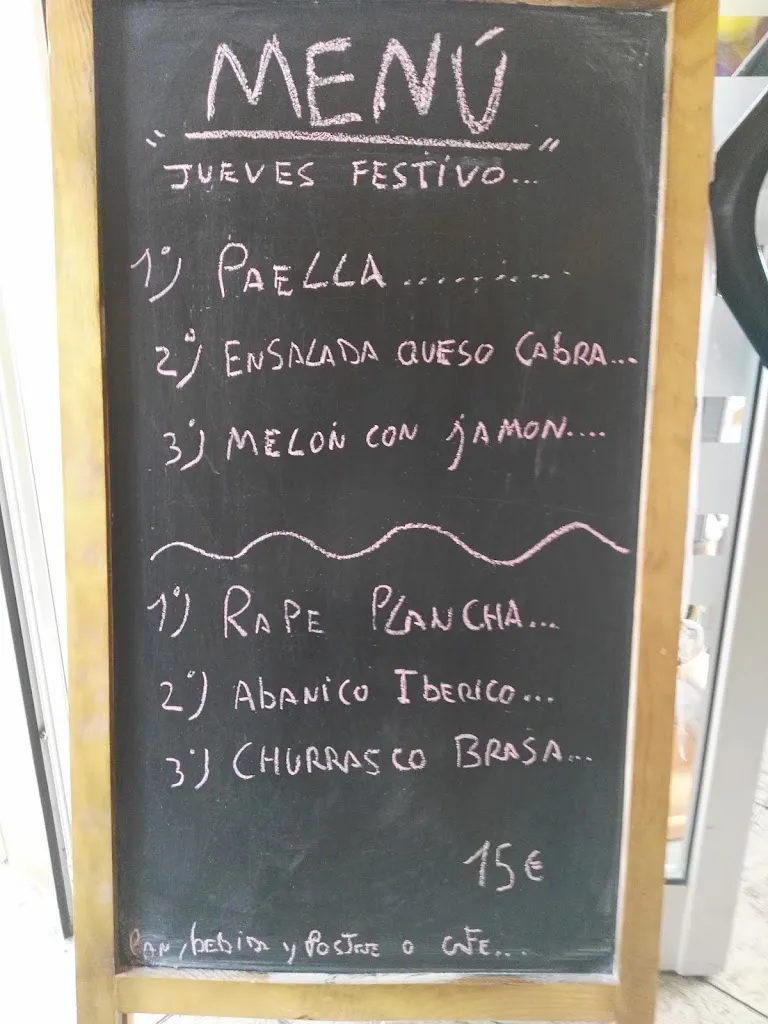 MENÚ
" JUEVES FESTIVO... "
1º) PAELLA..........
2º) ENSALADA QUESO CABRA...
3º) MELON CON JAMON....
1º) RAPE PLANCHA...
2º) ABANICO IBERICO...
3º) CHURRASCO BRASA...
15€
PAN, bEbIDA y POSTRE O CAFE....